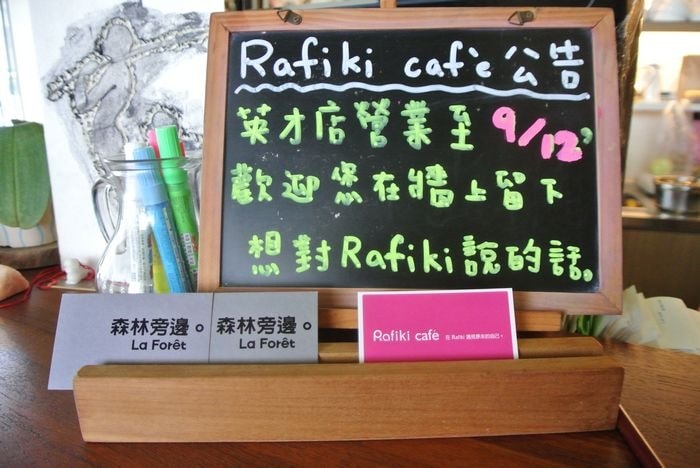 Rafiki cafe 公告
英才店營業至 9/12
歡迎您在牆上留下
想對Rafiki說的話。
森林旁邊。
La Forêt
森林旁邊。
La Forêt
Rafiki café